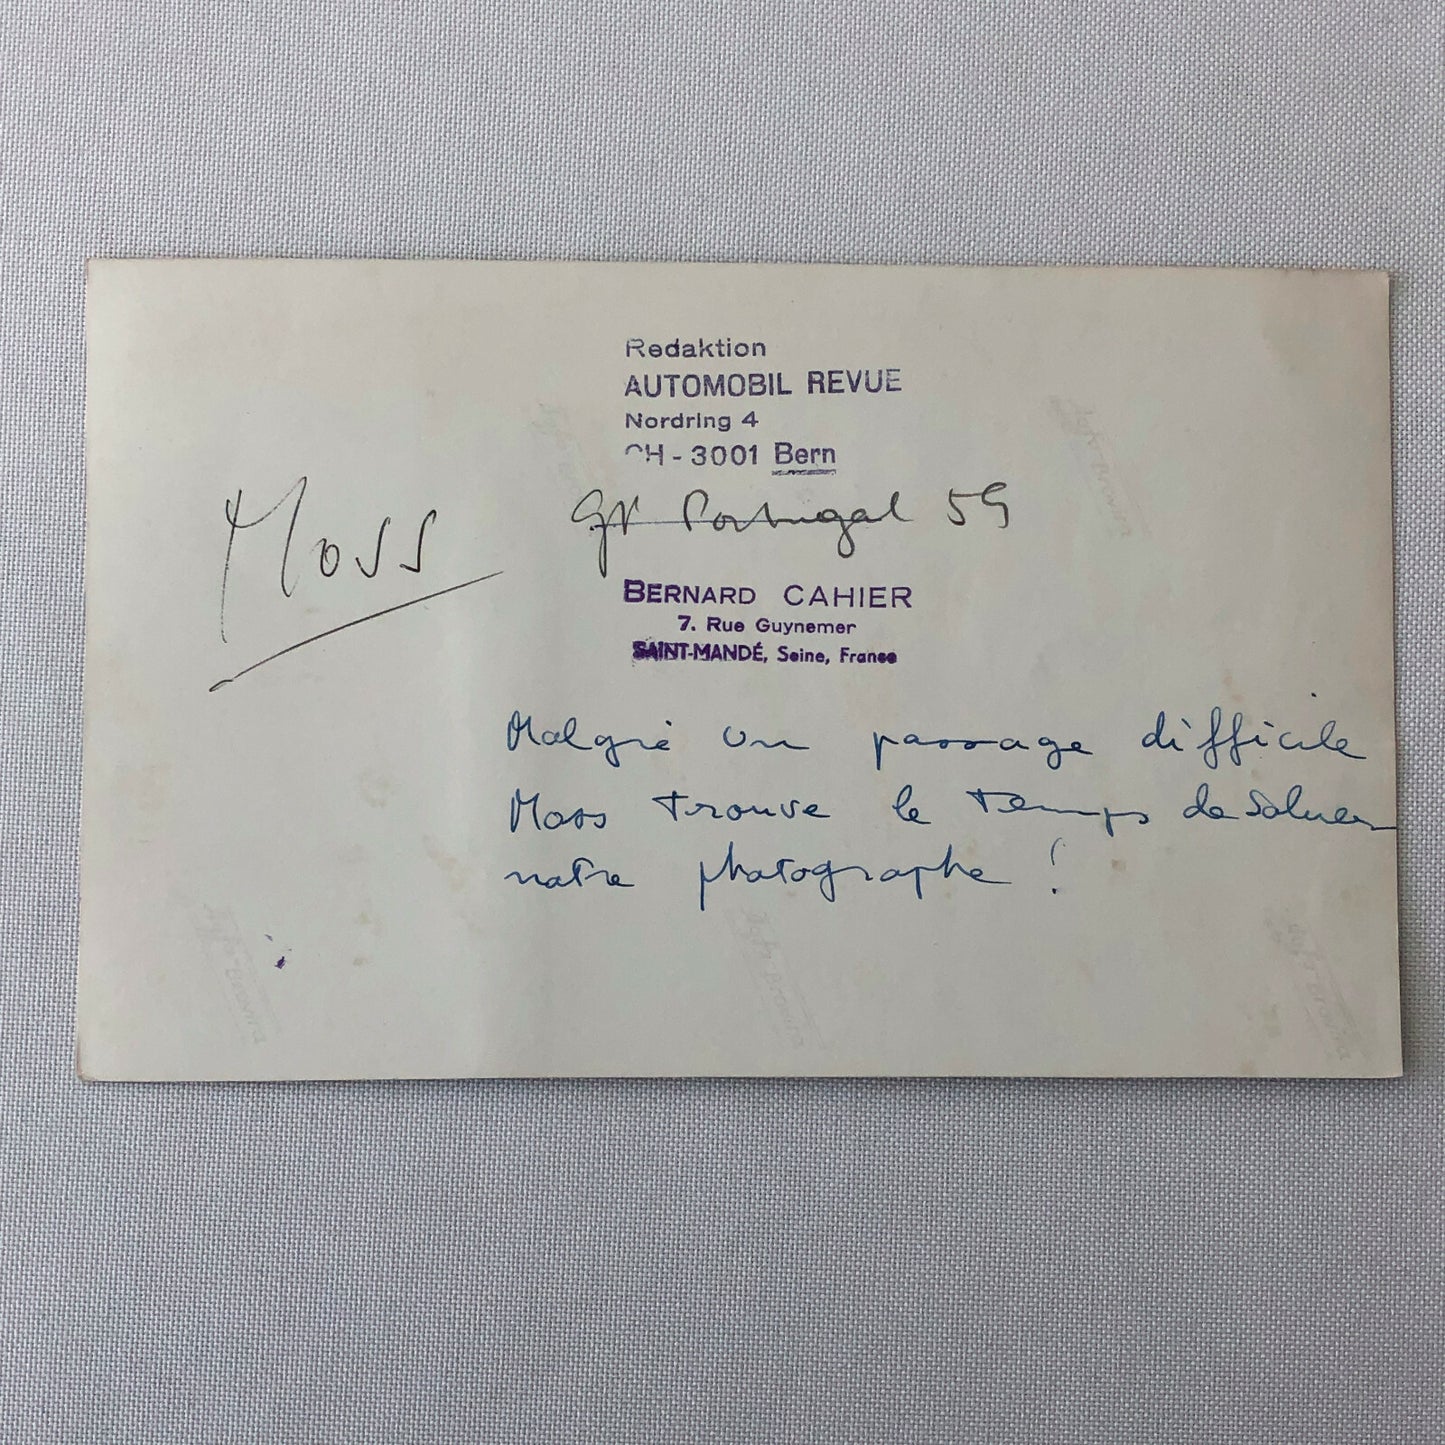 Redaktion
AUTOMOBIL REVUE
Nordring 4
CH - 3001 Bern
Moss
GP Portugal 59
BERNARD CAHIER
7. Rue Guynemer
SAINT-MANDÉ, Seine, France
Malgré un passage difficile
Moss trouve le temps de saluer
notre photographe !